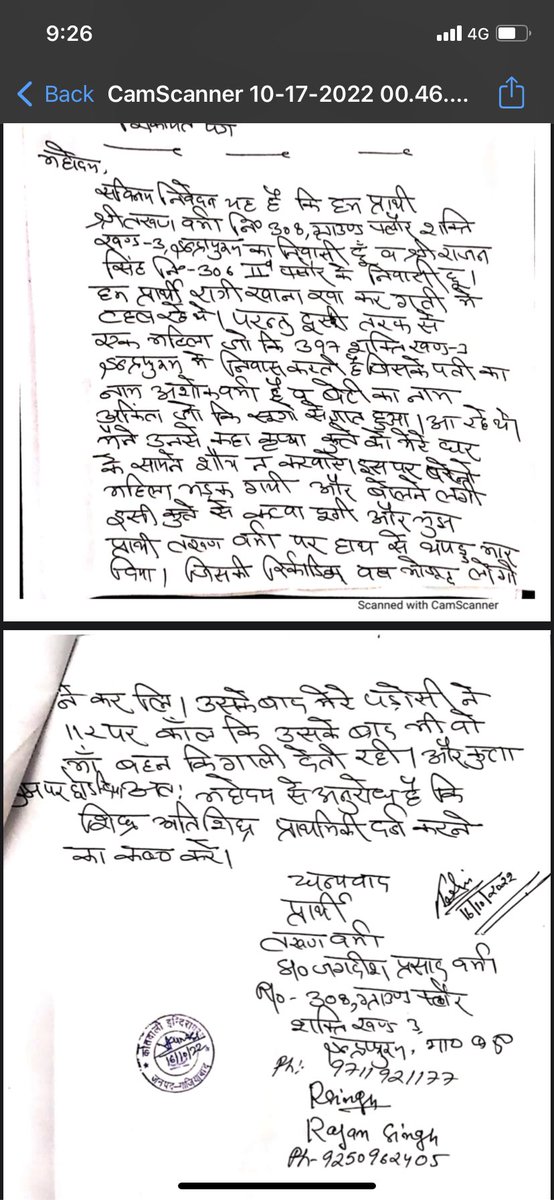 9:26
4G
Back CamScanner 10-17-2022 00.46....
शिकायत पत्र
महोदय,
सविनय निवेदन यह है कि हम प्रार्थी
श्री तरूण वर्मा नि० 308, ग्राउण्ड फ्लौर शक्ति
खण्ड-3, इन्द्रापुरम का निवासी हूँ व श्री राजन
सिंह नि०-306 IInd फ्लौर के निवासी हूँ।
हम प्रार्थी रात्री खाना खा कर गली में
टहल रहे थे। परन्तु इसी तरफ से
एक महिला जो कि 397 शक्ति खण्ड-3
इन्द्रापुरम में निवास करते हैं जिसके पती का
नाम अशोक वर्मा है व बेटी का नाम
अंकिता जो कि हुआ। आ रहे थे।
मैंने उनसे कहा कृप्या कुत्ते को मेरे घर
के सामने शौच न करवाये। इस पर
महिला भड़क गयी और बोलने लगी
इसी कुत्ते से कटवा दूगी और मुझ
प्रार्थी तरूण वर्मा पर हाथ से थप्पड़ मार
दिया। जिसकी रिकार्डिंग वहा मौजूद लोगो
Scanned with CamScanner
ने कर लि। उसके बाद मेरे पड़ोसी ने
112 पर कॉल कि उसके बाद भी वो
माँ बहन कि गाली देती रही। और कुत्ता
मुझ पर छोड़ दिया अतः महोदय से अनुरोध है कि
शिघ्र अतिशिघ्र प्राथमिकी दर्ज करने
का कष्ठ करे।
धन्यवाद
16/10/2022
प्रार्थी
तरूण वर्मा
S/o जगदीश प्रसाद वर्मा
R/o - 308, ग्राउण्ड फ्लौर
शक्ति खण्ड 3,
इन्द्रापुरम, गा० बाद
Ph: 9711921177
कोतवाली इन्दिरापुरम
16/10/22
जनपद-गाजियाबाद
RSingh
Rajan Singh
Ph-9250962405